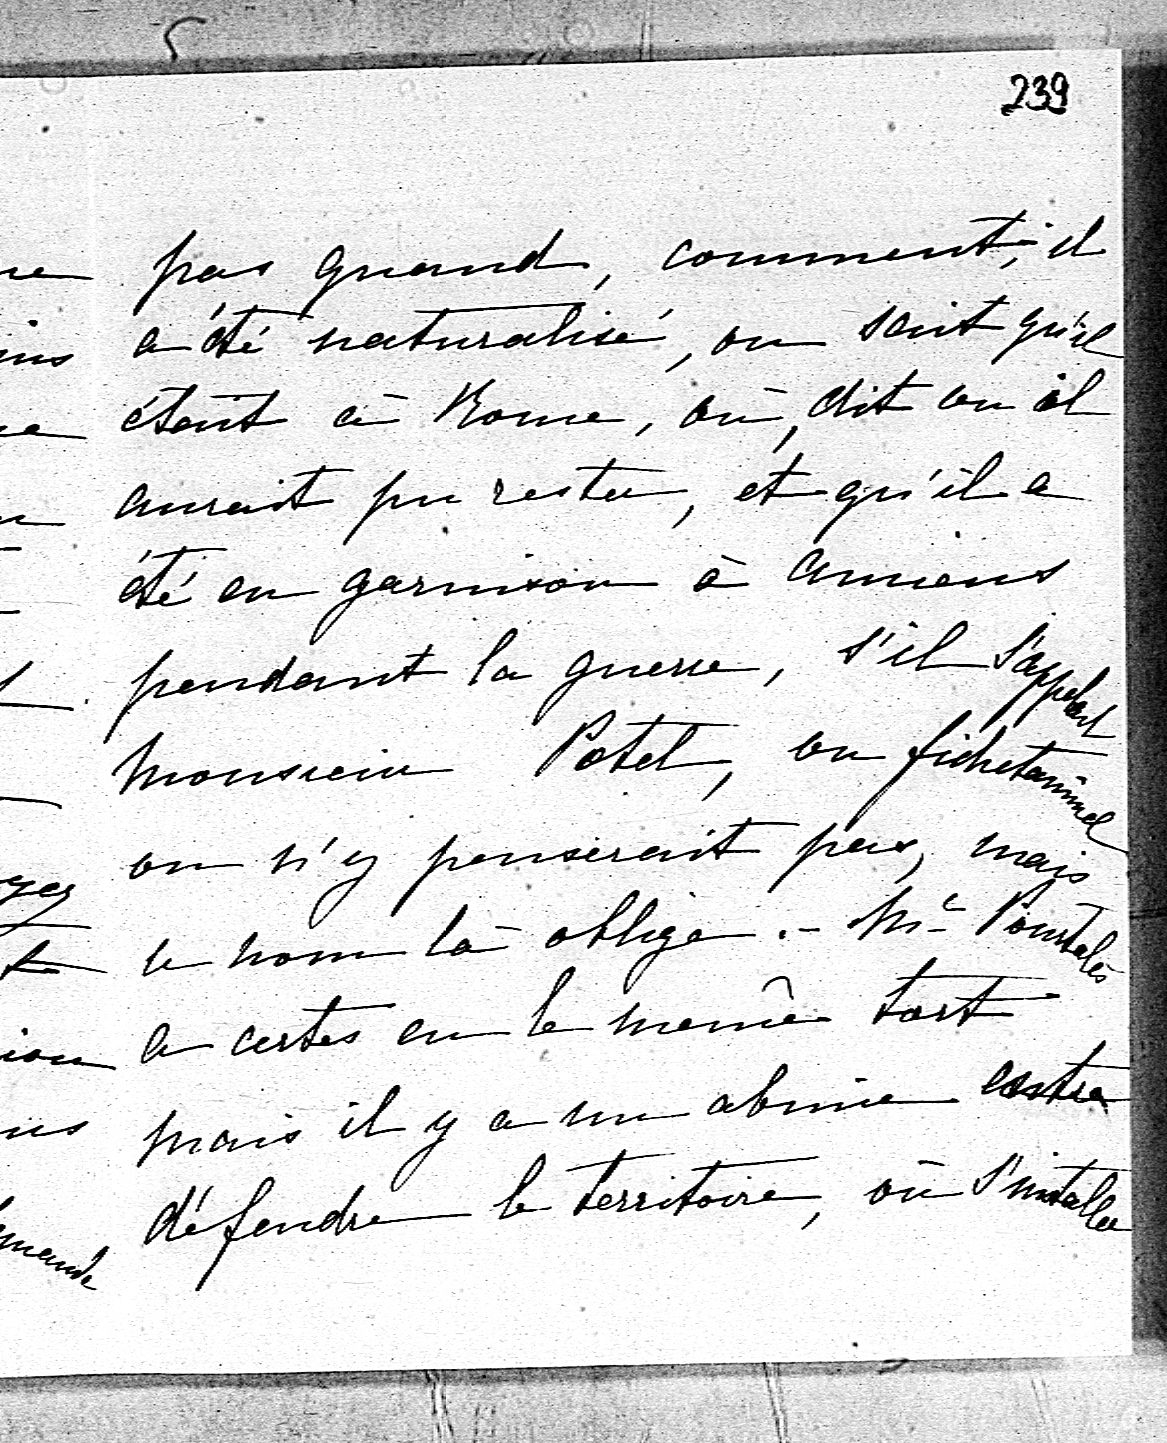 239
pas quand, comment, il
a été naturalisé, on sait qu'il
était à Rome, où, dit on il
aurait pu rester, et qu'il a
été en garnison à Amiens
pendant la guerre, s'il s'appelait
Monsieur Potel, ou
on n'y penserait pas, mais
le nom là oblige .- Mr Pourtalès
a certes eu le même tort
mais il y a un abime entre
défendre le territoire, où s'installer